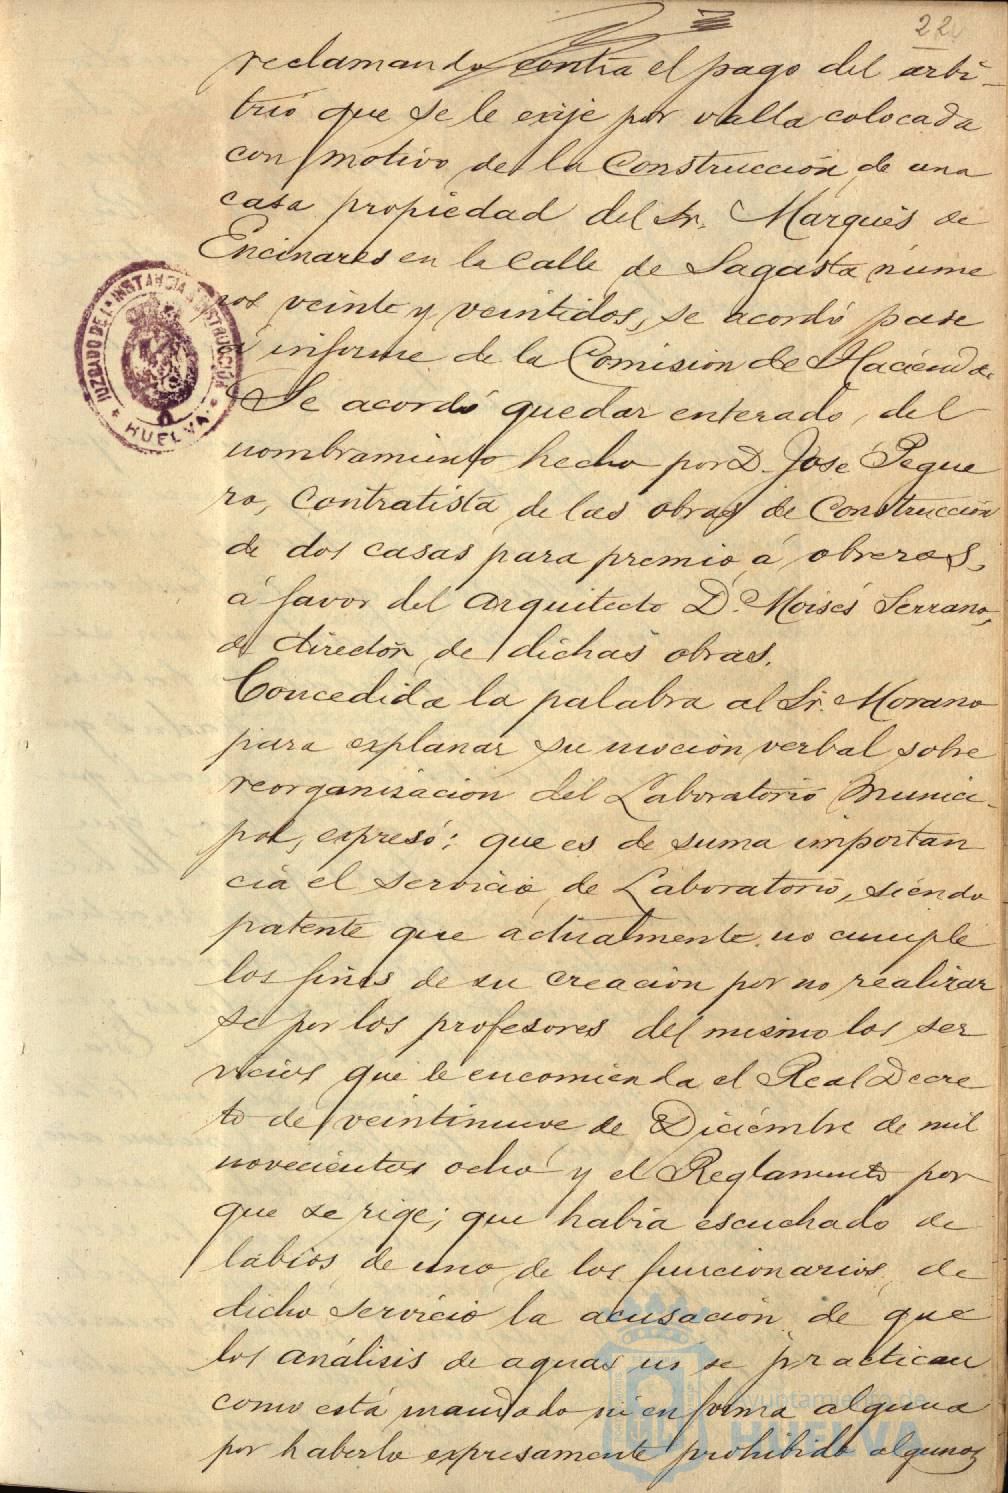 22
reclamando contra el pago del arbi-
trio que se le exije por valla colocada
con motivo de la Construcción de una
casa propiedad del Sr. Marqués de
Encinares en la calle de Sagasta núme
ros veinte y veintidos, se acordó pase
á informe de la Comisión de Hacienda
Se acordó quedar enterado del
nombramiento hecho por D. José Pegue
ro, contratista de las obras de Construcción
de dos casas para premio á obreros,
á favor del arquitecto D. Moisés Serrano,
de director de dichas obras.
Concedida la palabra al Sr. Morano
para explanar su moción verbal sobre
reorganización del Laboratorio Munici-
pal, expresó: que es de suma importan
cia el servicio de Laboratorio, siendo
patente que actualmente no cumple
los fines de su creación por no realizar
se por los profesores del mismo los ser
vicios que le encomienda el Real Decre
to de veintinueve de Diciembre de mil
novecientos ocho y el Reglamento por
que se rige; que había escuchado de
labios de uno de los funcionarios de
dicho servicio la acusación de que
los análisis de aguas no se practican
como está mandado ni en forma alguna
por haberlo expresamente prohibido algunos
JUZGADO DE 1ª INSTANCIA É INSTRUCCIÓN
* HUELVA *
Ayuntamiento de
HUELVA